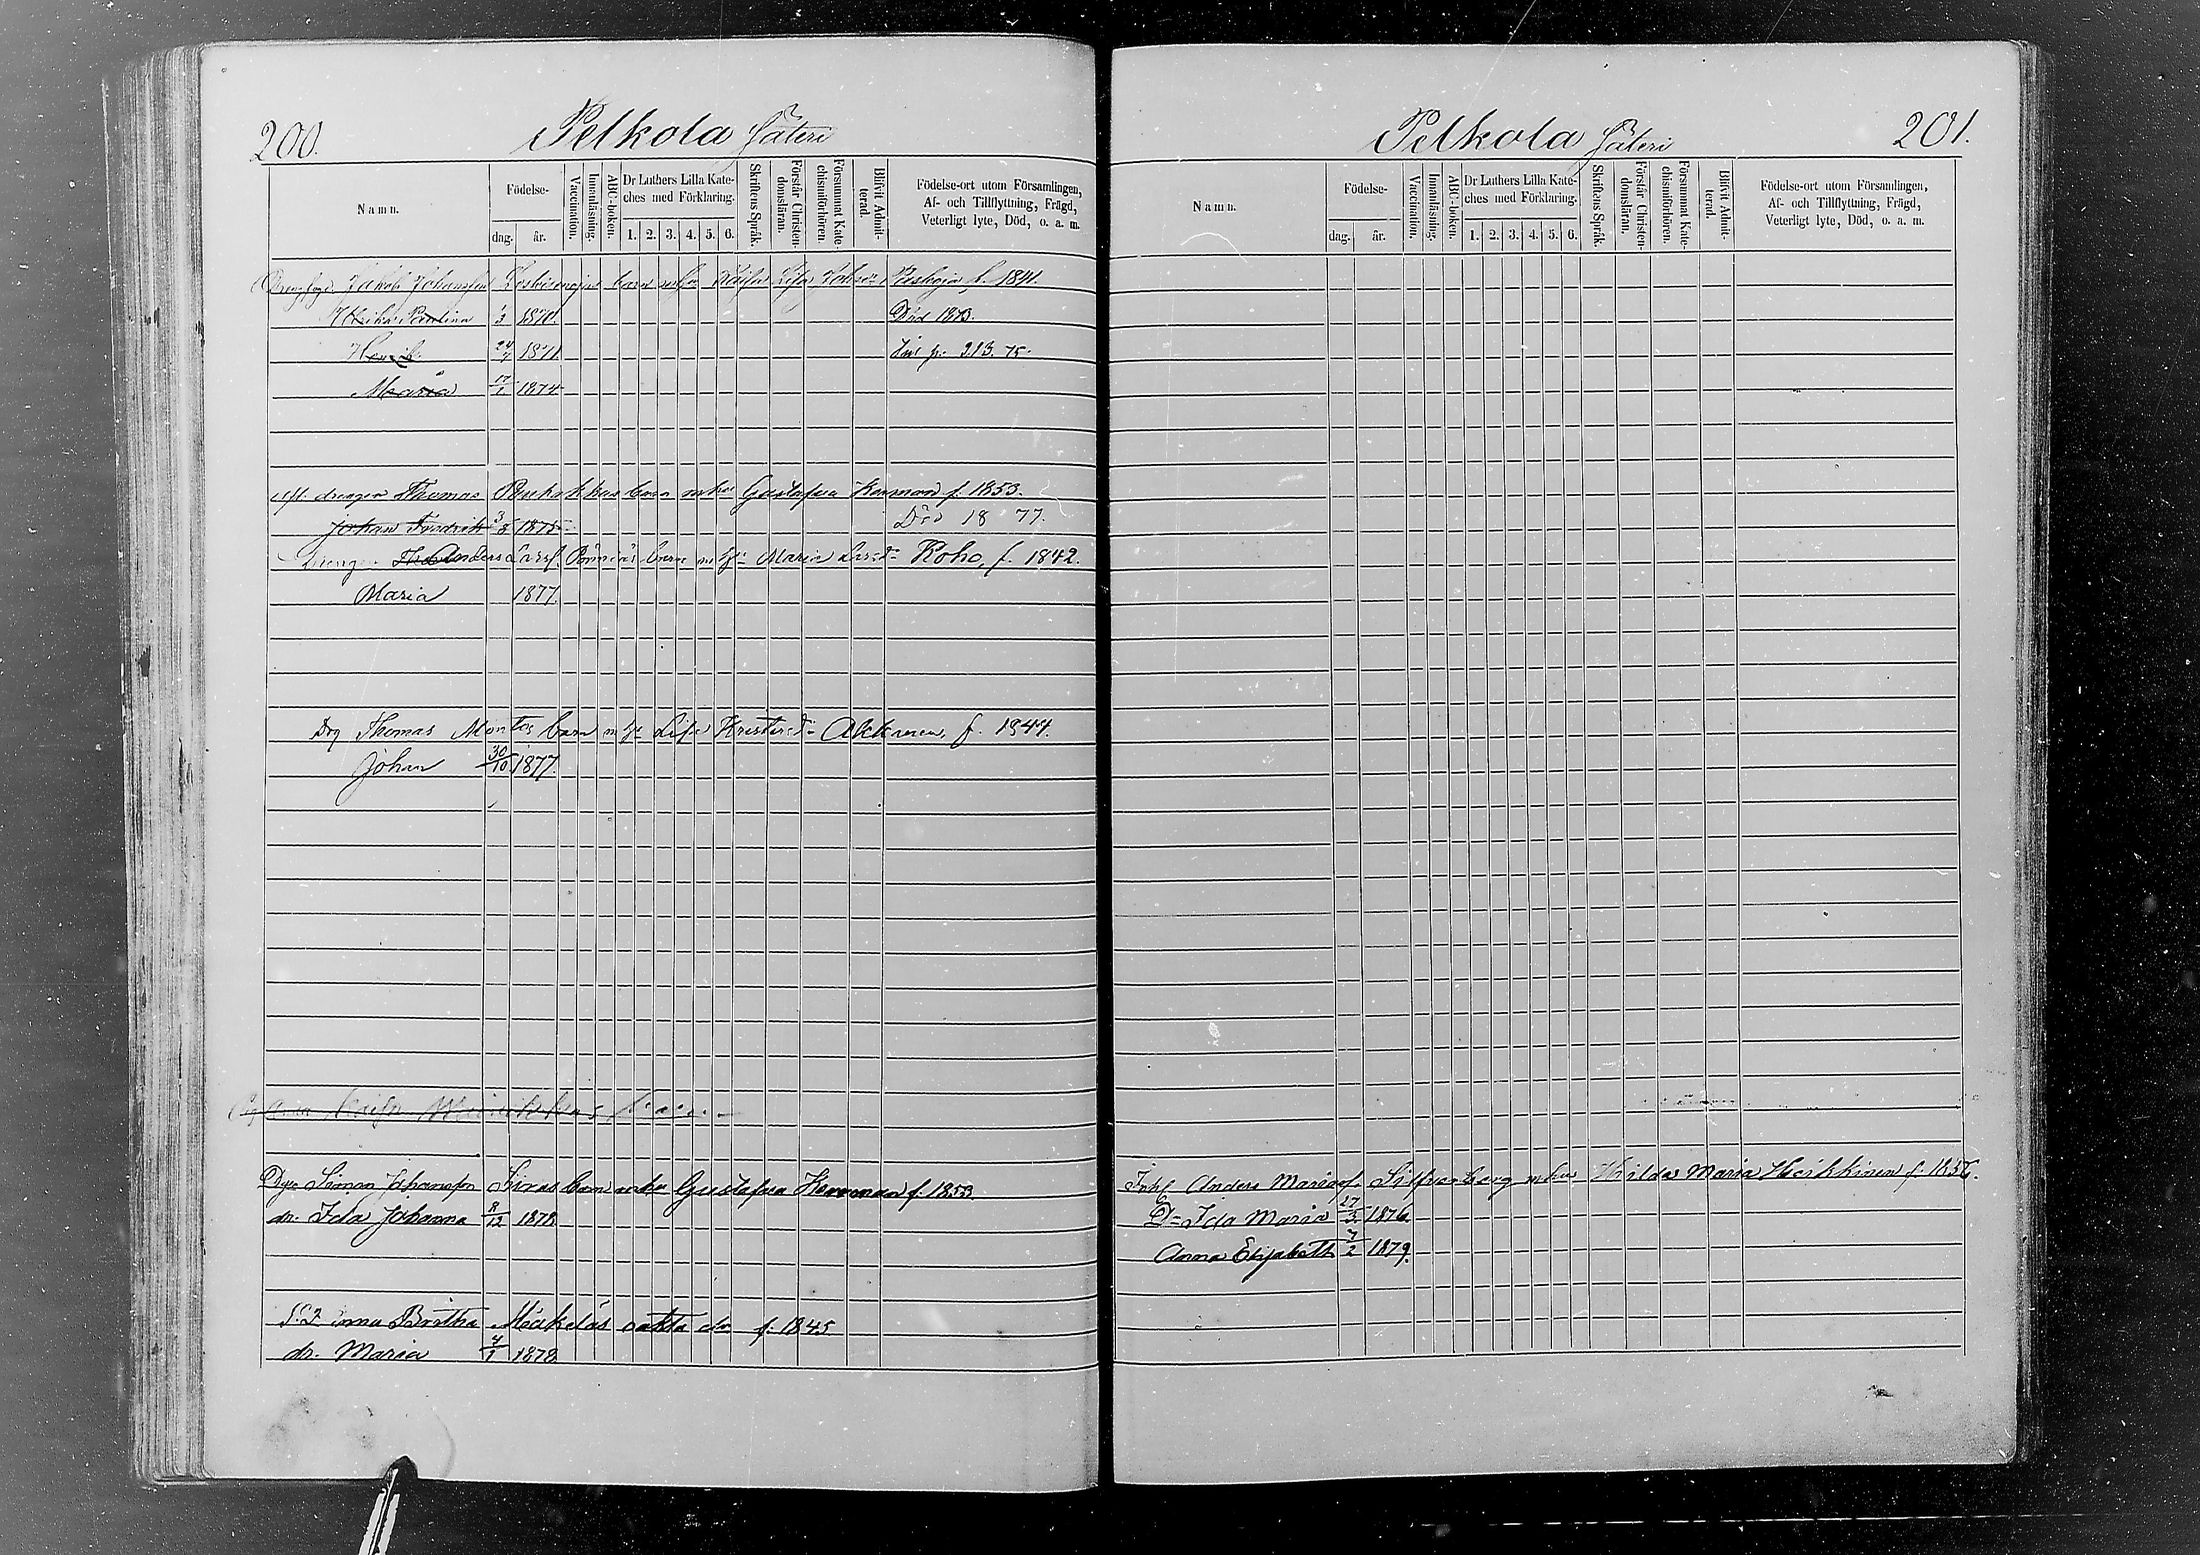 200.
Pelkola Säteri
Namn.
Födelse-
dag.
år.
Vaccination.
Innanläsning.
ABC-boken.
Dr Luthers Lilla Kate-
ches med Förklaring.
1. 2. 3. 4. 5. 6.
Skriftens Språk.
Förstår Christen-
domsläran.
Försummat Kate-
chismiförhören.
Blifvit Admit-
terad.
Födelse-ort utom Församlingen,
Af- och Tillflyttning, Frägd,
Veterligt lyte, Död, o. a. m.
Jakob Johansson barn f. 1841.
Ulrika Paulina 1/3 1870. Död 1873.
Henrik 24/7 1871 p. 213. 75.
Maria 17/1 1874
drengen Thomas barn Gustafva f. 1853.
Johan Fredrik 3/8 1875 Död 1877.
Anders Larss. barn Maria Larsd:r Roho, f. 1842.
Maria 1877.
Drg Thomas Montos barn Lisa Akkanen, f. 1844.
Johan 30/10 1877.
Simon Johansson Siras barn Gustafva f. 1853
dr. Ida Johanna 8/12 1878
Anna Britha Mäkeläs oäkta dr f. 1845
dr. Maria 4/1 1878
Pelkola Säteri
201.
Namn.
Födelse-
dag.
år.
Vaccination.
Innanläsning.
ABC-boken.
Dr Luthers Lilla Kate-
ches med Förklaring.
1. 2. 3. 4. 5. 6.
Skriftens Språk.
Förstår Christen-
domsläran.
Försummat Kate-
chismiförhören.
Blifvit Admit-
terad.
Födelse-ort utom Församlingen,
Af- och Tillflyttning, Frägd,
Veterligt lyte, Död, o. a. m.
Inh. Anders Silfverberg Hilda Maria Heikkinen f. 1856.
D:r Ida Maria 27/3 1876.
Anna Elisabeth 7/2 1879.